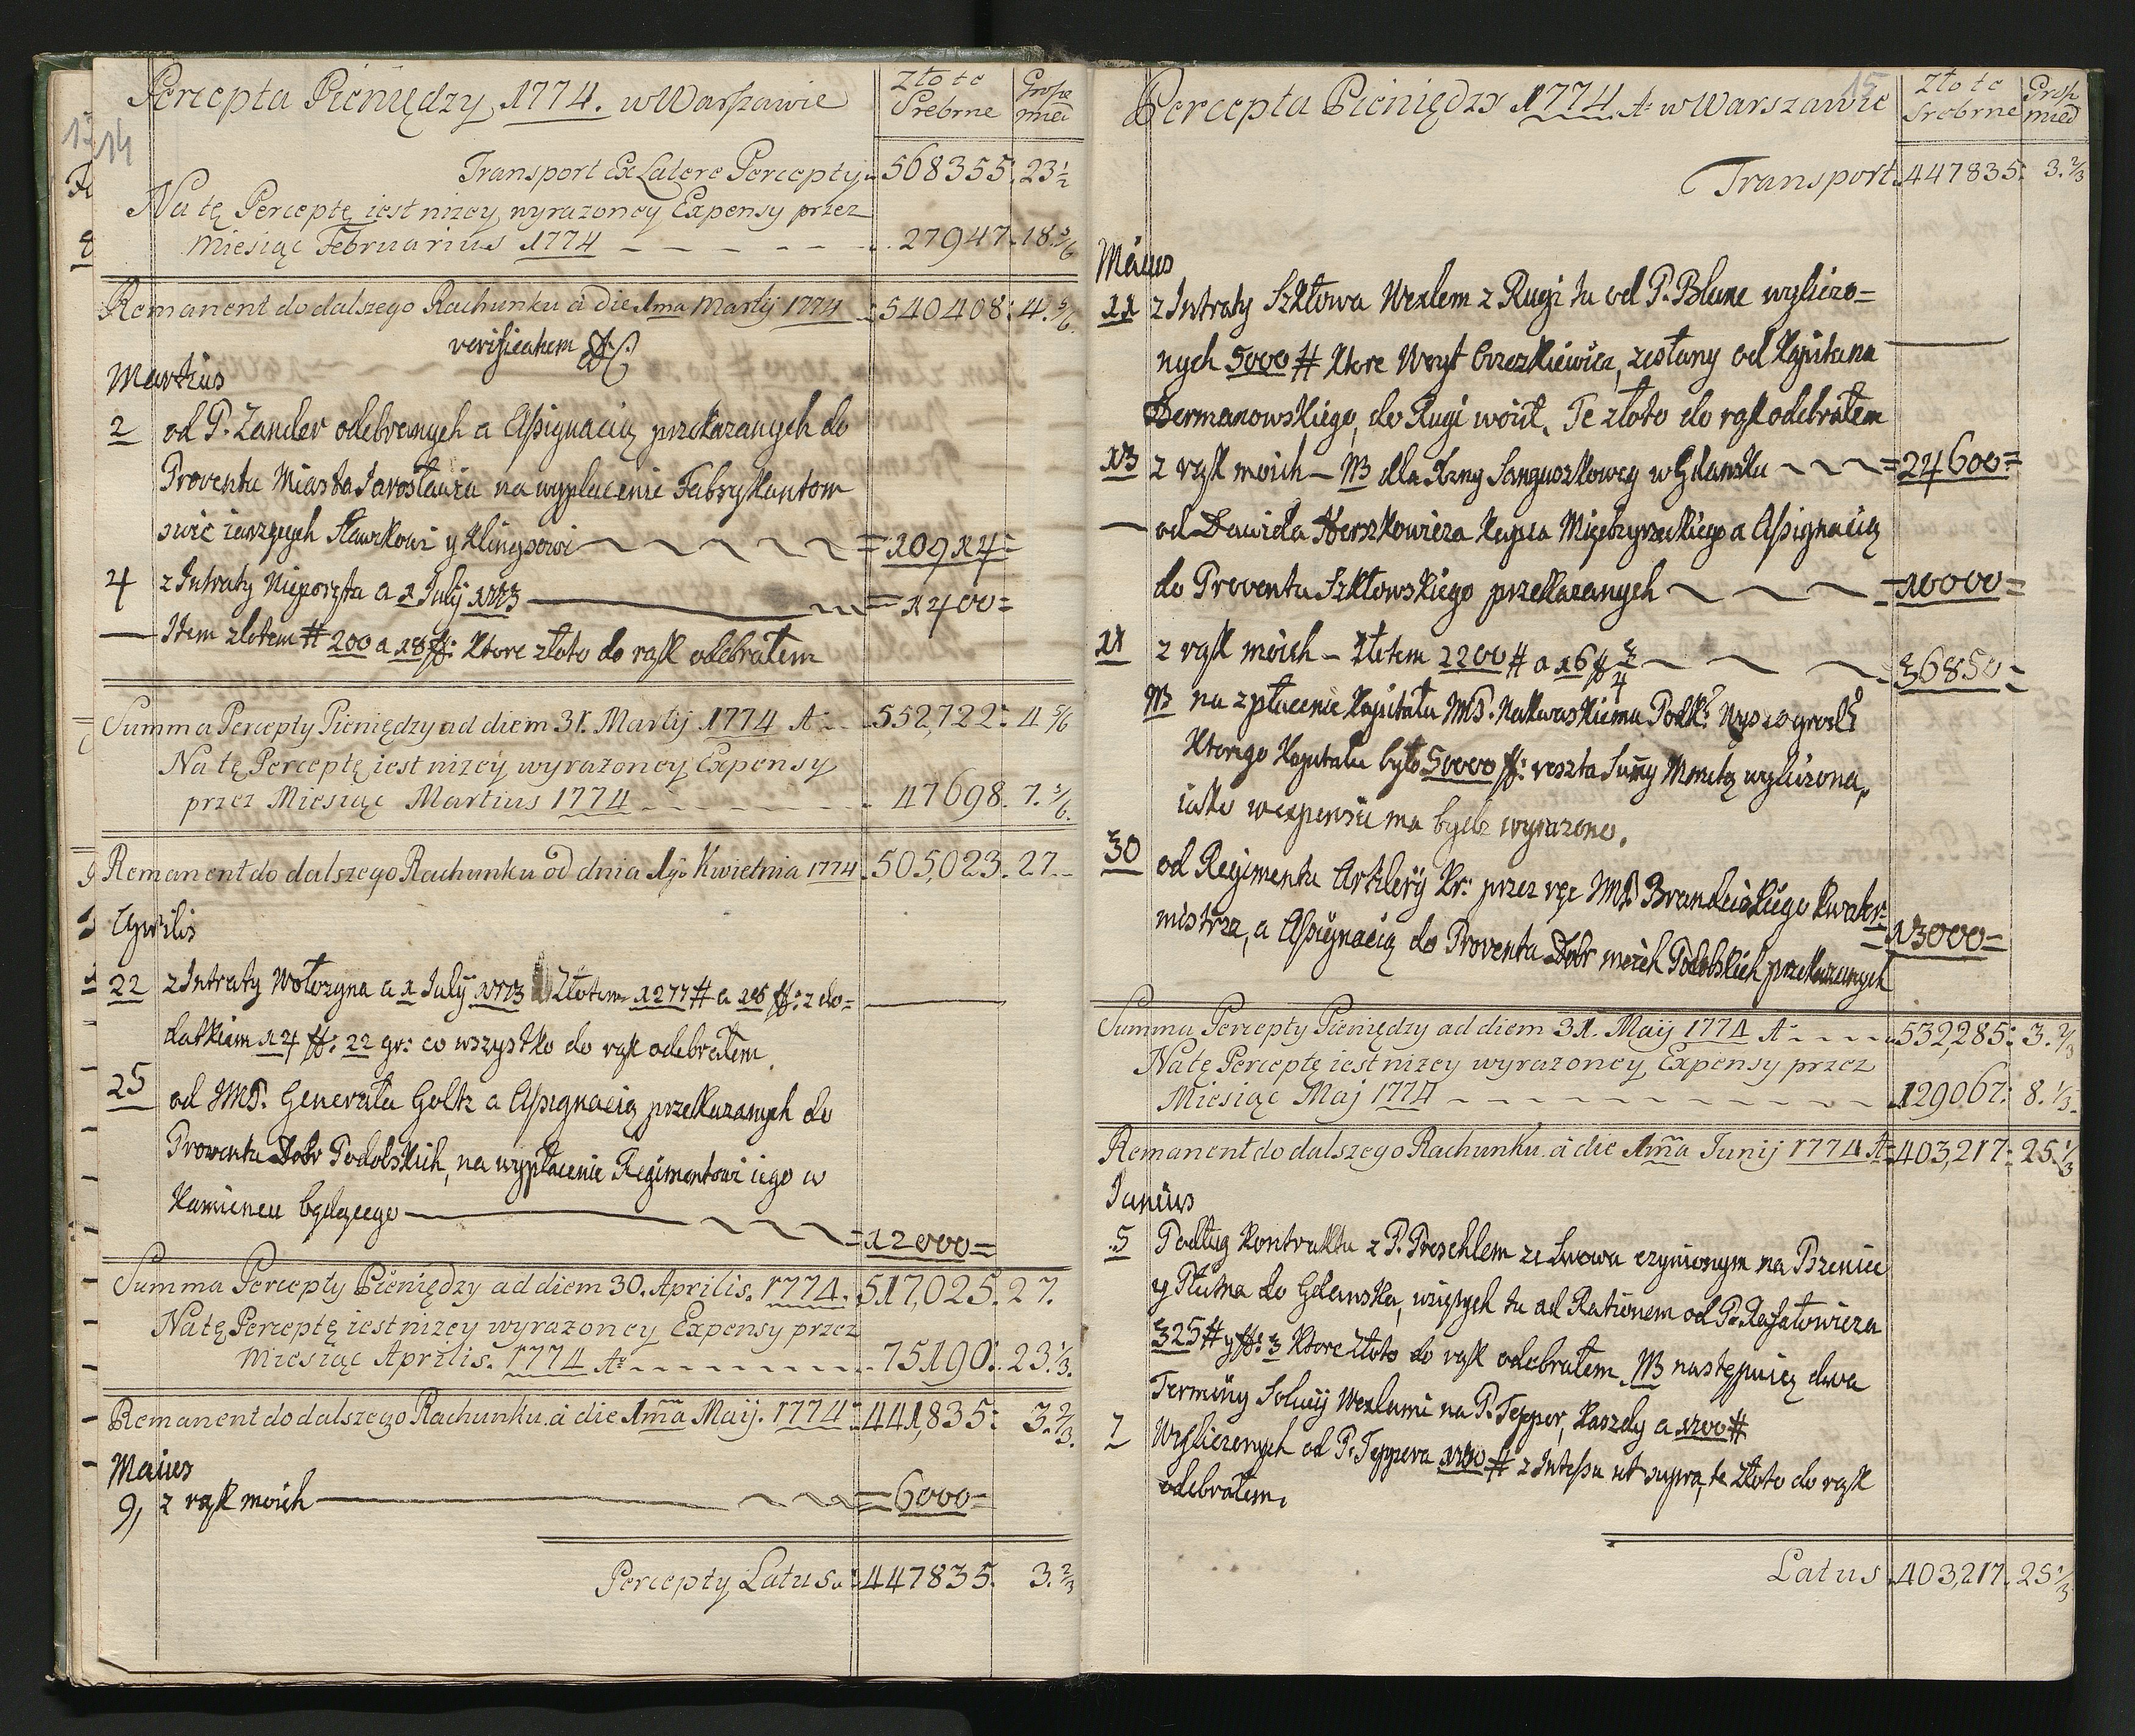 Percepta Pieniędzy 1774. w Warszawie
Złote Srebrne
Grosze mied
14
Transport Ex Latere Percepty 568355. 23 1/2
Na tę Perceptę iest nizey wyrazoney Expensy przez
Miesiąc Februarius 1774 27947. 18. 5/6
Remanent do dalszego Rachunku à die 1ma Martij 1774 540408: 4. 5/6.
verificatum
Martius
2 od P. Zander odebranych a Assignacią przekazanych do
Proventu Miasta Jarosławia na wypłacenie Fabrykantom
iarzących Sławkowi y Klingsowi = 10914 =
4 z Intraty Nieporęta a 1 July 1773 = 1400 =
— Item złotem # 200 a 18 ff: ktore złoto do rąk odebrałem
Summa Percepty Pieniędzy ad diem 31. Martij 1774 Aº 552,722: 4 5/6
Na tę Perceptę iest nizey wyrazoney Expensy
przez Miesiąc Martius 1774 47698. 7. 5/6.
Remanent do dalszego Rachunku od dnia 1go Kwietnia 1774 505,023. 27.
Aprilis
22 z Intraty Wołczyna a 1 July 1773 Złotem 1277 # a 18 ff: z do=
datkiem 14 ff: 22 gr: co wszystko do rąk odebrałem.
25 od JMP. Generała Goltz a Assignacią przekazanych do
Proventu Dobr Podolskich, na wypłacenie Regimentowi iego w
Kamiencu będącego = 12000 =
Summa Percepty Pieniędzy ad diem 30. Aprilis. 1774. 517,025. 27.
Na tę Perceptę iest nizey wyrazoney Expensy przez
Miesiąc Aprilis. 1774 Aº 75190: 23. 1/3.
Remanent do dalszego Rachunku à die 1ma Maij. 1774 441,835: 3. 2/3.
Maius
9, z rąk moich = 6000 =
Percepty Latus 447835. 3. 2/3
Percepta Pieniędzy 1774 Aº w Warszawie
15
Złote Srebrne
Grosz mied
Transport 447835: 3. 2/3
Maius
11 z Intraty Szkłowa Wexlem z Rygi tu od P. Blanc wyliczo=
nych 5000 # ktore Woyt zesłany od Kapitana
Dermanowskiego, do Rygi woził. Te złoto do rąk odebrałem
13 z rąk moich – NB dla Xzny Sanguszkowey w Gdansku = 24600 =
— od Dawida Herszkowicza Kupca Międzyrzeckiego a Assignacią
do Proventu Szkłowskiego przekazanych = 10000 =
11 z rąk moich – Złotem 2200 # a 16 ff 3/4 36850 =
NB na zpłacenie Kapitału JMP. Nakwaskiemu Podk: Wyszogrodz:
ktorego Kapitału było 50000 ff: reszta Sumy Monetą wyliczona,
iako w expensie ma bydz wyrazono.
30 od Regimentu Artylerij Kr: przez ręce JMP. Kwater=
mistrza, a Assignacią do Proventu Dobr moich Podolskich przekazanych = 13000 =
Summa Percepty Pieniędzy ad diem 31. Maij 1774 Aº 532,285: 3. 2/3
Na tę Perceptę iest nizey wyrazoney Expensy przez
Miesiąc Maj 1774 129067: 8. 1/3.
Remanent do dalszego Rachunku à die 1ma Junij 1774 Aº 403,217: 25. 1/3
Junius
5 Podług Kontraktu z P. Preschlem ze Lwowa czynionym na Pszenice
y Płutna do Gdanska, wziętych tu ad Rationem od P. Rafałowicza
325 # y ff: 3 ktore złoto do rąk odebrałem. NB następuią dwa
Terminy Solucij Wexlami na P. Tepper, kazdy a 1200 #
7 Wyliczonych od P. Teppera # z ut supra, te złoto do rąk
odebrałem.
Latus 403,217. 25 1/3